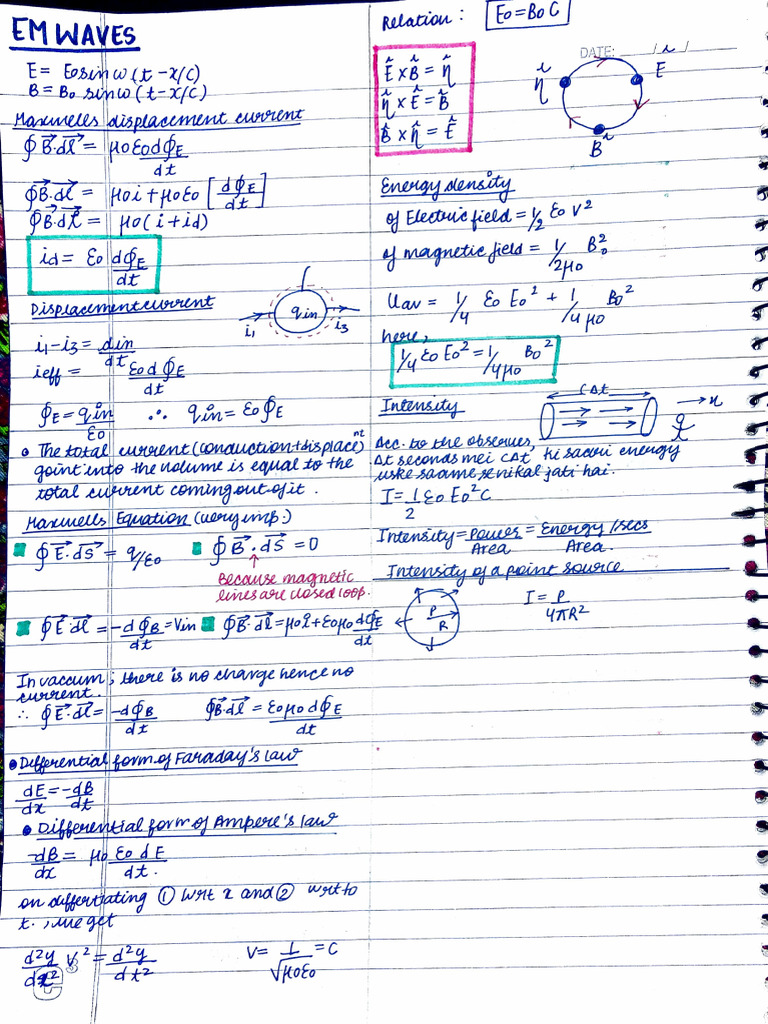 EM WAVES
E = E₀ sin ω (t - x/c)
B = B₀ sin ω (t - x/c)
Maxwells displacement current
∮ B⃗·dl⃗ = μ₀ε₀dϕE/dt
∮B⃗·dl⃗ = μ₀i + μ₀ε₀ [dϕE/dt]
∮B⃗·dl⃗ = μ₀(i + id)
id = ε₀ dϕE/dt
Displacement current
qin
i₁
i₃
i₁-i₃ = din/dt
ieff = ε₀dϕE/dt
ϕE = qin/ε₀ ∴ qin = ε₀ϕE
• The total current (conduction + displace)nt
goint into the volume is equal to the
total current coming out of it.
Maxwells Equation (very imp.)
∮ E⃗·ds⃗ = q/ε₀
∮ B⃗·ds⃗ = 0
Because magnetic
lines are closed loop.
∮ E⃗·dl⃗ = -dϕB/dt = Vin
∮B⃗·dl⃗ = μ₀i + ε₀μ₀dϕE/dt
In vaccum; there is no charge hence no
current.
∴ ∮E⃗·dl⃗ = -dϕB/dt ∮B⃗·dl⃗ = ε₀μ₀dϕE/dt
• Differential form of Faraday's law
dE/dx = -dB/dt
• Differential form of Ampere's law
-dB/dx = μ₀ε₀dE/dt.
on differtiating ① wrt x and ② wrt to
t., we get
d²y/dx² V² = d²y/dt² V = 1/√μ₀ε₀ = C
Relation: E₀ = B₀C
DATE:
Ê × B̂ = n̂
n̂ × Ê = B̂
B̂ × n̂ = Ê
n̂
E
B̂
Energy density
of Electric field = 1/2 ε₀ V²
of magnetic field = 1/2μ₀ B₀²
Uav = 1/4 ε₀ E₀² + 1/4μ₀ B₀²
here,
1/4 ε₀ E₀² = 1/4μ₀ B₀²
Intensity
CΔt
x
Acc. to the observer,
Δt seconds mei CΔt, ki saari energy
uske saamne se nikal jati hai.
I = 1/2 ε₀ E₀² C
Intensity = Power/Area = Energy/secs/Area.
Intensity of a point source
P
R
I = P/4πR²